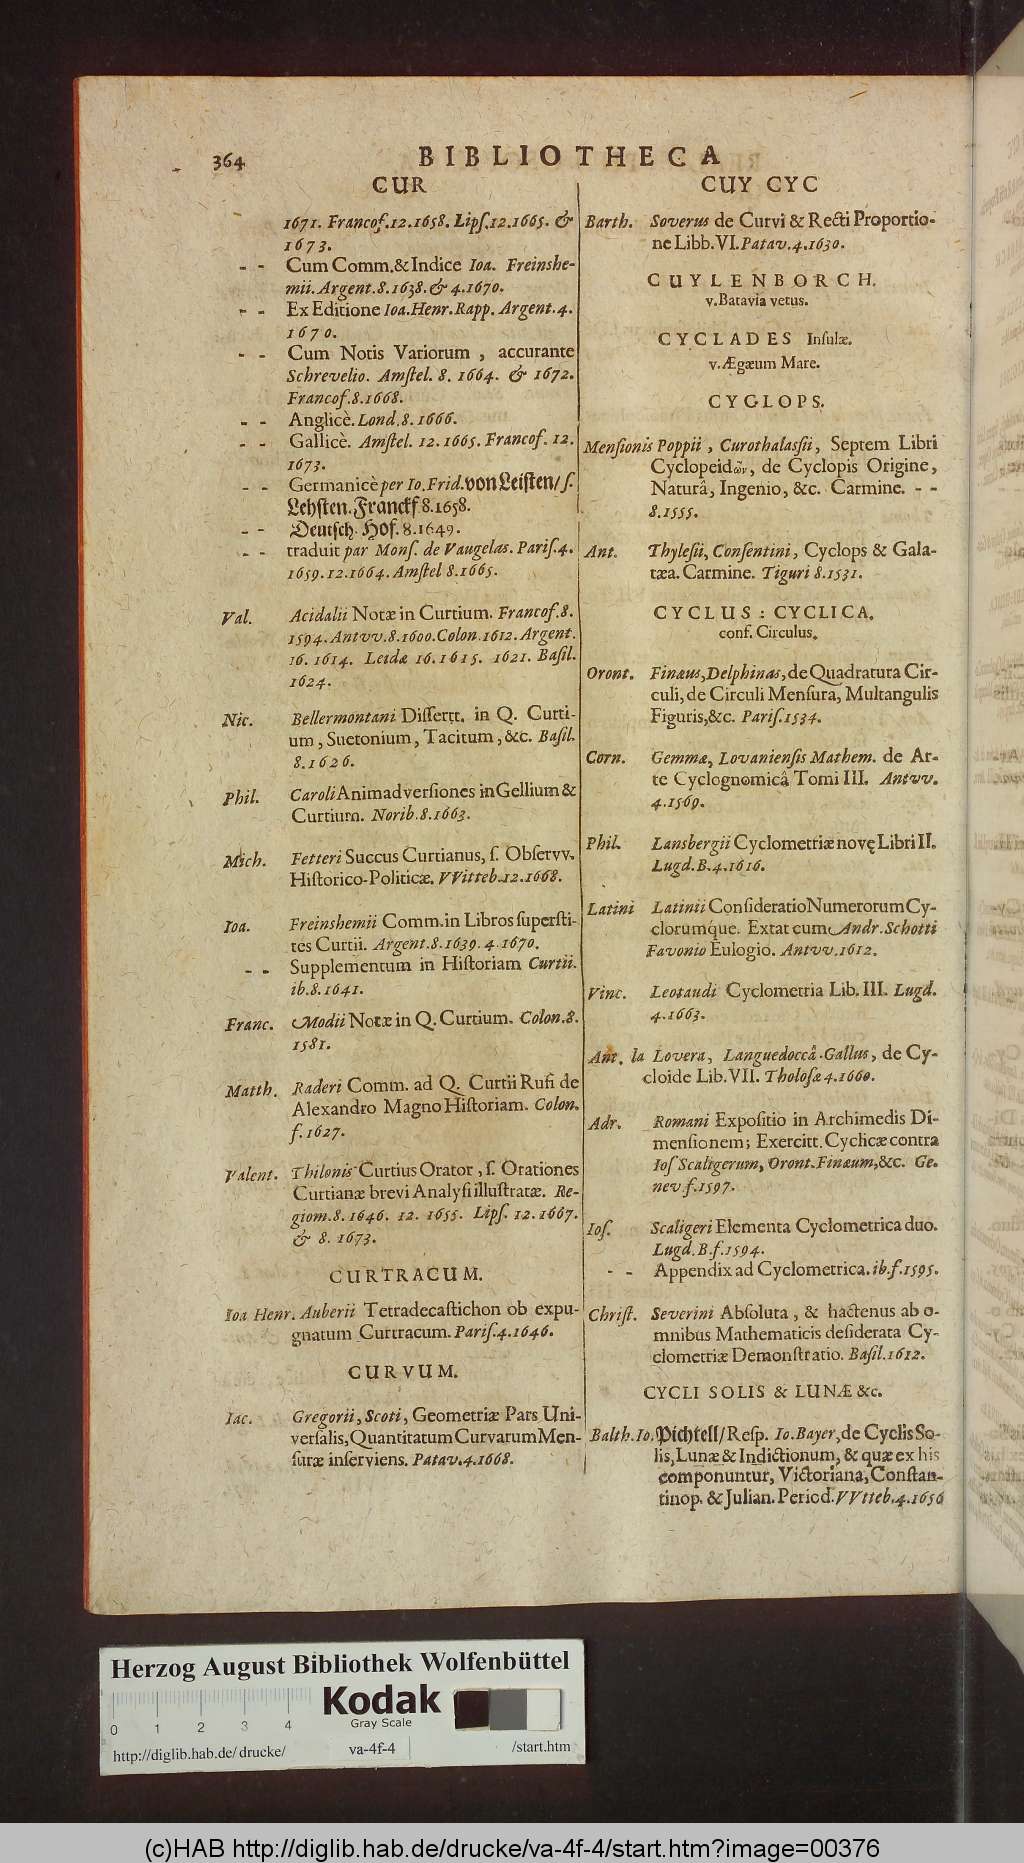 364
BIBLIOTHECA
CUR
1671. Francof. 12. 1658. Lipſ. 12. 1665. &
1673.
- - Cum Comm. & Indice Ioa. Freinshe-
mii. Argent. 8. 1638. & 4. 1670.
- - Ex Editione Ioa. Henr. Rapp. Argent. 4.
1670.
- - Cum Notis Variorum, accurante
Schrevelio. Amſtel. 8. 1664. & 1672.
Francof. 8. 1668.
- - Anglicè. Lond. 8. 1666.
- - Gallicè. Amſtel. 12. 1665. Francof. 12.
1673.
- - Germanicè per Io. Frid. von Leiſten/ ſ.
Lehſten. Franckf 8. 1658.
- - Deutſch. Hof. 8. 1649.
- - traduit par Monſ. de Vaugelas. Pariſ. 4.
1659. 12. 1664. Amſtel 8. 1665.
Val. Acidalii Notæ in Curtium. Francof. 8.
1594. Antvv. 8. 1600. Colon. 1612. Argent.
16. 1614. Leidæ 16. 1615. 1621. Baſil.
1624.
Nic. Bellermontani Diſſertt. in Q. Curti-
um, Suetonium, Tacitum, &c. Baſil.
8. 1626.
Phil. Caroli Animadverſiones in Gellium &
Curtium. Norib. 8. 1663.
Mich. Fetteri Succus Curtianus, ſ. Obſervv.
Hiſtorico-Politicæ. VVitteb. 12. 1668.
Ioa. Freinshemii Comm. in Libros ſuperſti-
tes Curtii. Argent. 8. 1639. 4. 1670.
- - Supplementum in Hiſtoriam Curtii.
ib. 8. 1641.
Franc. Modii Notæ in Q. Curtium. Colon. 8.
1581.
Matth. Raderi Comm. ad Q. Curtii Rufi de
Alexandro Magno Hiſtoriam. Colon.
f. 1627.
Valent. Thilonis Curtius Orator, ſ. Orationes
Curtianæ brevi Analyſi illuſtratæ. Re-
giom. 8. 1646. 12. 1655. Lipſ. 12. 1667.
& 8. 1673.
CURTRACUM.
Ioa Henr. Auberii Tetradecaſtichon ob expu-
gnatum Curtracum. Pariſ. 4. 1646.
CURVUM.
Iac. Gregorii, Scoti, Geometriæ Pars Uni-
verſalis, Quantitatum Curvarum Men-
ſuræ inſerviens. Patav. 4. 1668.
CUY CYC
Barth. Soverus de Curvi & Recti Proportio-
ne Libb. VI. Patav. 4. 1630.
CUYLENBORCH.
v. Batavia vetus.
CYCLADES Inſulæ.
v. Ægæum Mare.
CYGLOPS.
Menſionis Poppii, Curothalaſſii, Septem Libri
Cyclopeidῶν, de Cyclopis Origine,
Naturâ, Ingenio, &c. Carmine. - -
8. 1555.
Ant. Thyleſii, Conſentini, Cyclops & Gala-
tæa. Carmine. Tiguri 8. 1531.
CYCLUS: CYCLICA.
conf. Circulus.
Oront. Finæus, Delphinas, de Quadratura Cir-
culi, de Circuli Menſura, Multangulis
Figuris, &c. Pariſ. 1534.
Corn. Gemmæ, Lovanienſis Mathem. de Ar-
te Cyclognomicâ Tomi III. Antvv.
4. 1569.
Phil. Lansbergii Cyclometriæ novę Libri II.
Lugd. B. 4. 1616.
Latini Latinii Conſideratio Numerorum Cy-
clorumque. Extat cum Andr. Schotti
Favonio Eulogio. Antvv. 1612.
Vinc. Leotaudi Cyclometria Lib. III. Lugd.
4. 1663.
Ant. la Lovera, Languedoccâ-Gallus, de Cy-
cloide Lib. VII. Tholoſæ 4. 1660.
Adr. Romani Expoſitio in Archimedis Di-
menſionem; Exercitt. Cyclicæ contra
Ioſ Scaligerum, Oront. Finæum, &c. Ge-
nev f. 1597.
Ioſ. Scaligeri Elementa Cyclometrica duo.
Lugd. B. f. 1594.
- - Appendix ad Cyclometrica. ib. f. 1595.
Chriſt. Severini Abſoluta, & hactenus ab o-
mnibus Mathematicis deſiderata Cy-
clometriæ Demonſtratio. Baſil. 1612.
CYCLI SOLIS & LUNÆ &c.
Balth. Io. Pichtell/ Reſp. Io. Bayer, de Cyclis So-
lis, Lunæ & Indictionum, & quæ ex his
componuntur, Victoriana, Conſtan-
tinop. & Julian. Period. VVtteb. 4. 1656
Herzog August Bibliothek Wolfenbüttel
Kodak
Gray Scale
0 1 2 3 4
http://diglib.hab.de/drucke/ va-4f-4 /start.htm
(c)HAB http://diglib.hab.de/drucke/va-4f-4/start.htm?image=00376